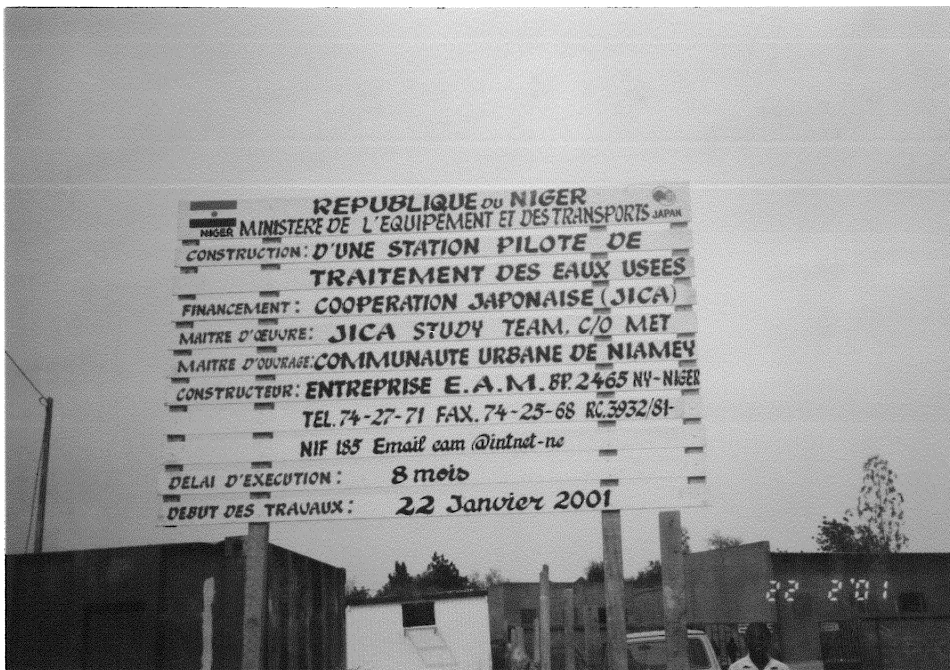 REPUBLIQUE DU NIGER
NIGER MINISTERE DE L'EQUIPEMENT ET DES TRANSPORTS JAPAN
CONSTRUCTION: D'UNE STATION PILOTE DE
TRAITEMENT DES EAUX USEES
FINANCEMENT: COOPERATION JAPONAISE (JICA)
MAITRE D'ŒUVRE: JICA STUDY TEAM. C/O MET
MAITRE D'OUVRAGE: COMMUNAUTE URBANE DE NIAMEY
CONSTRUCTEUR: ENTREPRISE E.A.M. BP. 2465 NY-NIGER
TEL. 74-27-71 FAX. 74-25-68 RC. 3932/81-
NIF 185 Email eam @intnet-ne
DELAI D'EXECUTION: 8 mois
DEBUT DES TRAVAUX: 22 Janvier 2001
22 2'01